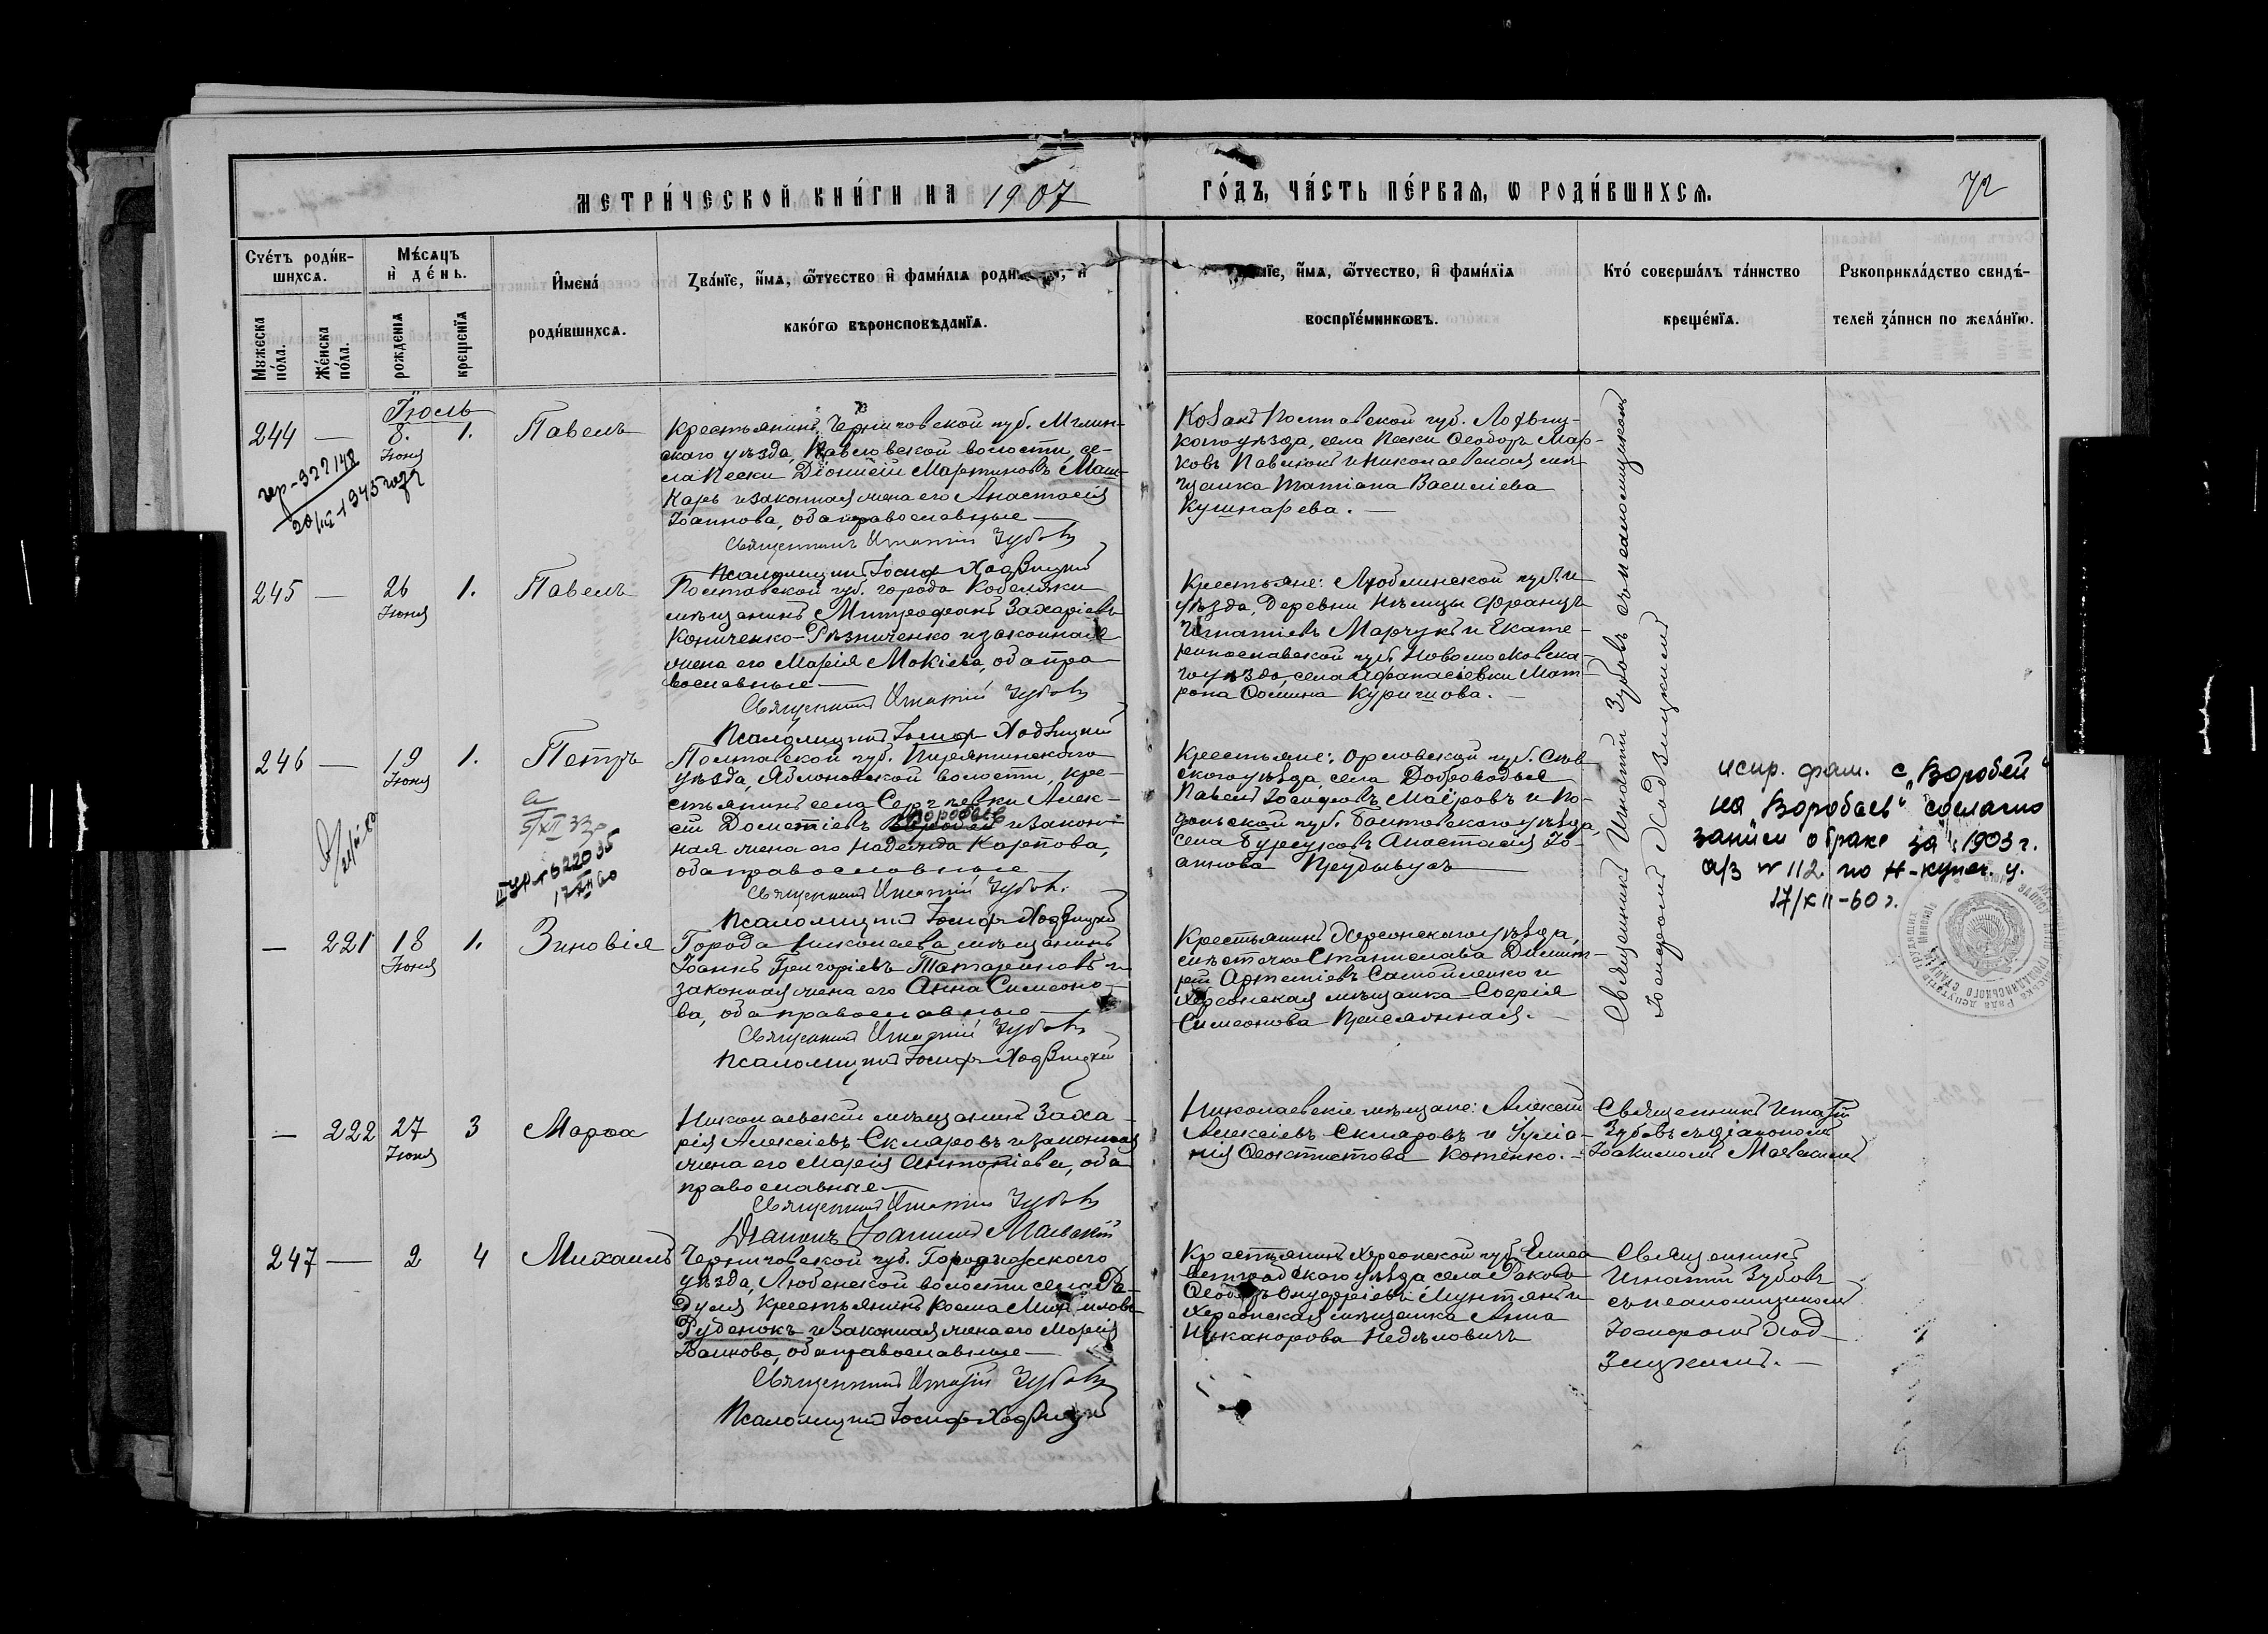 МЕТРИ́ЧЕСКОЙ КНИ́ГИ НА 1907 ГО́ДЪ, ЧА́СТЬ ПЕ́РВАЯ, Ѡ РОДИ́ВШИХСЯ.
72
Сче́тъ роди́в-
шихсѧ.
Мꙋжеска по́ла.
Же́нска по́ла.
Мѣ́сѧцъ
и҆ де́нь.
рожденїѧ
крещенїѧ
И҆мена́
роди́вшихсѧ.
Зва́нїе, и҆́мѧ, ѻ҆́тчество и҆ фами́лїѧ и҆
како́гѡ вѣроисповѣ́данїѧ.
и҆́мѧ, ѻ҆́тчество, и҆ фами́лїѧ
воспрїе́мникѡвъ.
Кто́ соверша́лъ та́инство
креще́нїѧ.
Рꙋкоприкла́дство свидѣ́-
телей за́писи по жела́нїю.
Іюль
244 — 8. Іюня 1. Павелъ
Крестьянинъ Черниговской губ. Мглин-
скаго уѣзда, Павловской волости, се-
ла Пески Діонисій Мартиновъ Маш-
каръ и законная жена его Анастасія
Іоаннова, оба православные —
Священникъ Игнатій Зубовъ
Псаломщикъ Іосифъ Ходзицкій
Козакъ Полтавской губ. Лохвиц-
каго уѣзда, села Пески Ѳеодоръ Мар-
ковъ Павлюкъ и Николаевская мѣ-
щанка Татіана Василіева
Кушнарева. —
Священникъ Игнатій Зубовъ съ псаломщикомъ
Іосифомъ Ходзицкимъ
20/III-1945 года
245 — 26 Іюня 1. Павелъ
Полтавской губ. города Кобеляки
мѣщанинъ Митрофанъ Захаріевъ
Кониченко-Рѣзниченко и законная
жена его Марія Мокіева, оба пра-
вославные —
Священникъ Игнатій Зубовъ
Псаломщикъ Іосифъ Ходзицкій
Крестьяне: Люблинской губ. и
уѣзда, деревни Нѣмцы Францъ
Игнатіевъ Марчукъ и Екате-
ринославской губ. Новомосковска-
го уѣзда, села Афанасіевки Мат-
рона Ѳомина Куришова. —
246 — 19 Іюня 1. Петръ
Полтавской губ. Пирятинскаго
уѣзда, Яблоновской волости, кре-
стьянинъ села Сергѣевки Алек-
сій Дометіевъ Воробей Воробьев и закон-
ная жена его Надежда Карпова,
оба православные —
Священникъ Игнатій Зубовъ.
Псаломщикъ Іосифъ Ходзицкій
Крестьяне: Орловской губ. Сѣв-
скаго уѣзда, села Доброводья
Павелъ Іосифовъ Маіровъ и По-
дольской губ. Балтского уѣзда,
села Бурсуковъ Анастасія Іо-
аннова
5/XII 33г
17 XII 60
испр. фам. с „Воробей“
на „Воробьев“ согласно
записи о браке за 1903 г.
а/з № 112 по Н-купеч. ц.
17/XII-60 г.
— 221 18 Іюня 1. Зиновія
Города Николаева мѣщанинъ
Іоаннъ Григоріевъ Татариновъ и
законная жена его Анна Симеоно-
ва, оба православные —
Священникъ Игнатій Зубовъ
Псаломщикъ Іосифъ Ходзицкій
Крестьянинъ Херсонскаго уѣзда,
мѣстечка Станислава Димит-
рій Артеміевъ Самойленко и
Херсонская мѣщанка Софія
Симеонова Присяжная. —
— 222 27 Іюня 3 Марѳа
Николаевскій мѣщанинъ Заха-
рія Алексіевъ Скляровъ и законная
жена его Марія Антоніева, оба
православные —
Священникъ Игнатій Зубовъ
Діаконъ Іоакимъ Маевскій
Николаевскіе мѣщане: Алексій
Алексіевъ Скляровъ и Іуліа-
нія Ѳеоктистова Котенко. —
Священникъ Игнатій
Зубовъ съ діакономъ
Іоакимомъ Маевскимъ
247 — 2 4 Михаилъ
Черниговской губ. Городнянскаго
уѣзда, Любечской волости села Ра-
дуля крестьянинъ Косма Михаиловъ
Рубенокъ и законная жена его Марія
Іоаннова, оба православные —
Священникъ Игнатій Зубовъ
Псаломщикъ Іосифъ Ходзицкій
Крестьянинъ Херсонской губ. Елиса-
ветградскаго уѣзда села Раково
Ѳеодоръ Онуфріевъ Мунтянъ и
Херсонская мѣщанка Анна
Никанорова Недѣловичъ
Священникъ
Игнатій Зубовъ
съ псаломщикомъ
Іосифомъ Ход-
зицкимъ. —